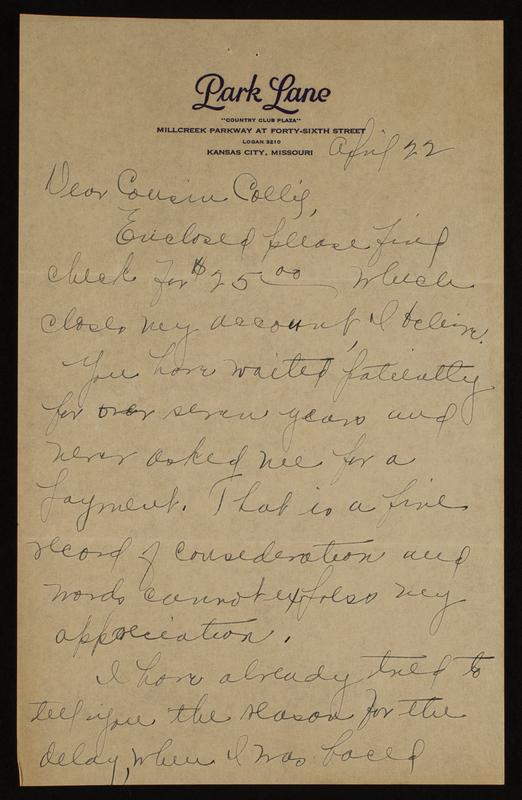 Park Lane
"COUNTRY CLUB PLAZA"
MILLCREEK PARKWAY AT FORTY-SIXTH STREET
LOGAN 3210
KANSAS CITY, MISSOURI
April 22
Dear Cousin
Enclosed please find
check for $25.00 which
closes my account, I believe.
You have waited patiently
for over seven years and
never asked me for a
payment. That is a fine
record of consideration and
words cannot express my
appreciation.
I have already tried to
tell you the reason for the
delay, when I was faced